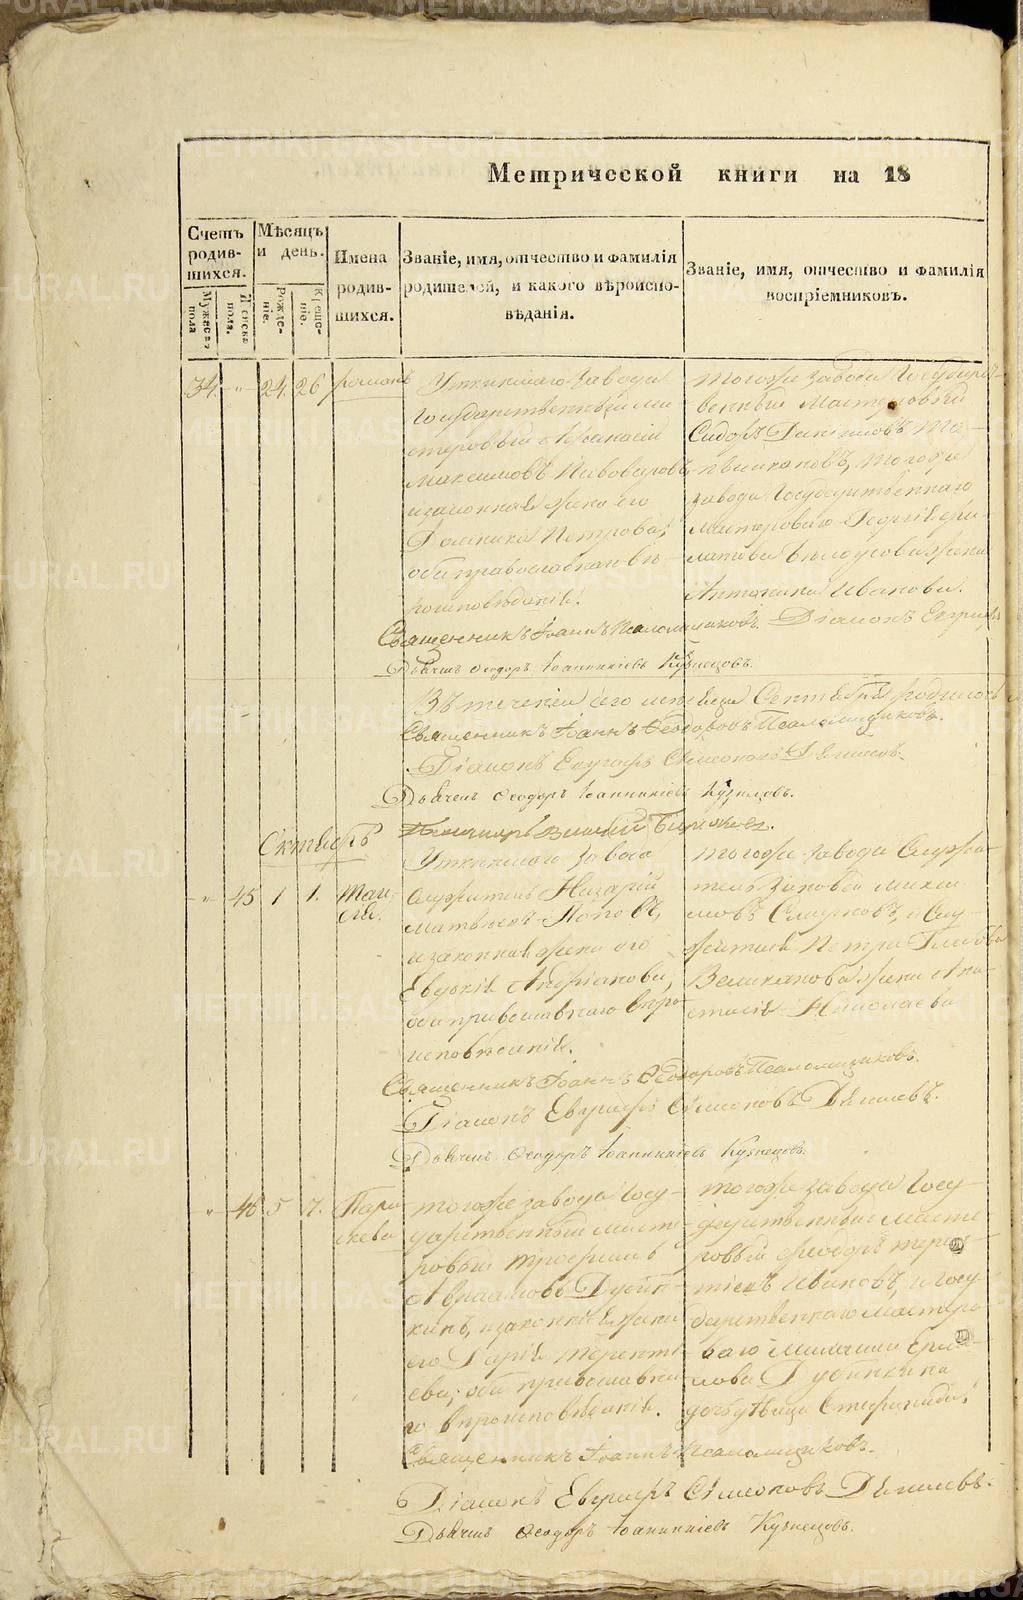 Метрической книги на 18
Счетъ родив-шихся.
Мѣсяцъ и день.
Имена родив-шихся.
Званіе, имя, отчество и фамилія родителей, и какого вѣроиспо-вѣданія.
Званіе, имя, отчество и фамилія воспріемниковъ.
Мужеска пола
Женска пола.
Рожде-ніе.
Креще-ніе.
34. - " - 24. 26 романъ
Уткинскаго завода
Государственный ма-
стеровый Афанасій
Максимовъ Пивоваровъ,
и законная жена его
Домника Петрова;
оба православнаго вѣ-
роисповѣданія.
тогоже завода Государст-
венный мастеровый
Сидоръ Даниловъ
тогоже
завода Государственнаго
мастероваго Георгія
жена
Антонина Иванова.
Священникъ Іоаннъ Псаломщиковъ. Діаконъ Евграфъ
Дьячекъ Ѳеодоръ Іоанникіевъ Кузнецовъ.
Въ теченіи сего месяца Сентября родилось
Священникъ Іоаннъ Ѳеодоровъ Псаломщиковъ.
Діаконъ Евграфъ Симеоновъ Денисовъ.
Дьячекъ Ѳеодоръ Іоанникіевъ Кузнецовъ.
Октябрь
- " - 45 1 1. Таи-
сія.
Уткинскаго завода
служитель Назарій
Матвѣевъ Поповъ,
и законная жена его
Евдокія Андріанова,
оба православнаго вѣро-
исповѣданія.
тогоже завода Служи-
тель Зиновей
Смирновъ, и Слу-
жителя Петра Глебова
Великанова жена Ана-
стасія Николаева
Священникъ Іоаннъ Ѳеодоровъ Псаломщиковъ.
Діаконъ Евграфъ Симеоновъ Денисовъ.
Дьячекъ Ѳеодоръ Іоанникіевъ Кузнецовъ.
- " - 46 5 7. Пара-
скева
тогоже завода Госу-
дарственный масте-
ровый
Авраамовъ
кинъ, и законная жена
его Дарія Теренть-
ева; оба православна-
го вѣроисповѣданія.
тогоже завода Госу-
дарственный масте-
ровый Феодоръ Терен-
тіевъ Ивановъ, и Госу-
дарственнаго мастеро-
ваго
дочь дѣвица Стефанида.
Священникъ Іоаннъ Псаломщиковъ.
Діаконъ Евграфъ Симеоновъ Денисовъ.
Дьячекъ Ѳеодоръ Іоанникіевъ Кузнецовъ.
METRIKI.GASO-URAL.RU